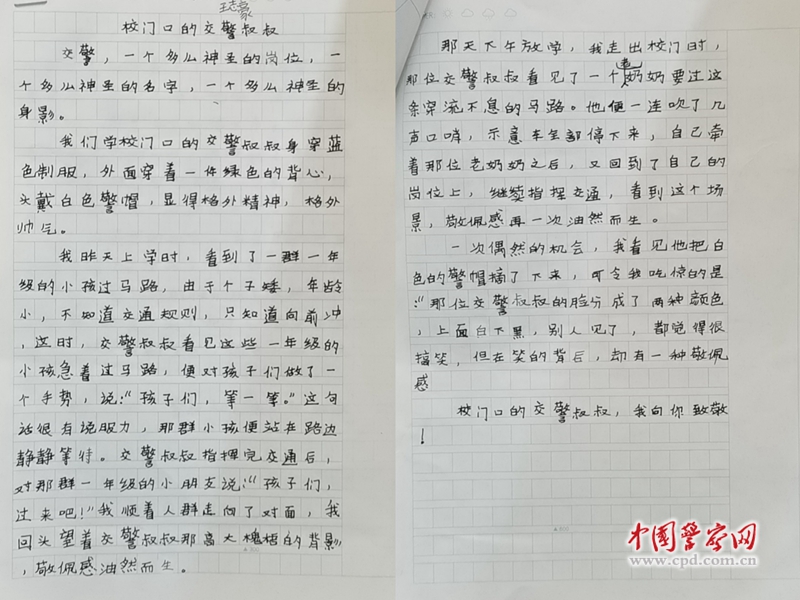 王志豪
校门口的交警叔叔
交警，一个多么神圣的岗位，一
个多么神圣的名字，一个多么神圣的
身影。
我们学校门口的交警叔叔身穿蓝
色制服，外面穿着一件绿色的背心，
头戴白色警帽，显得格外精神，格外
帅气。
我昨天上学时，看到了一群一年
级的小孩过马路，由于个子矮，年龄
小，不知道交通规则，只知道向前冲
，这时，交警叔叔看见这些一年级的
小孩急着过马路，便对孩子们做了一
个手势，说：“孩子们，等一等。”这句
话很有说服力，那群小孩便站在路边
静静等待。交警叔叔指挥完交通后，
对那群一年级的小朋友说：“孩子们，
过来吧！”我顺着人群走向了对面，我
回头望着交警叔叔那高大槐梧的背影
，敬佩感油然而生。
那天下午放学，我走出校门时，
那位交警叔叔看见了一个老奶奶要过这
条穿流不息的马路。他便一连吹了几
声口哨，示意车全部停下来，自己牵
着那位老奶奶之后，又回到了自己的
岗位上，继续指挥交通，看到这个场
景，敬佩感再一次油然而生。
一次偶然的机会，我看见他把白
色的警帽摘了下来，可令我吃惊的是
：“那位交警叔叔的脸分成了两种颜色
，上面白下黑，别人见了，都觉得很
搞笑，但在笑的背后，却有一种敬佩
感
校门口的交警叔叔，我向你致敬
！
中国警察网
www.cpd.com.cn